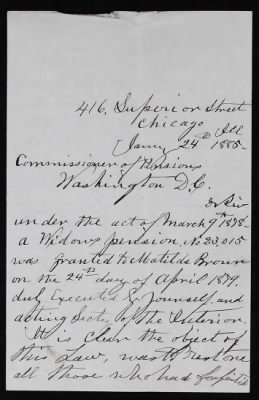 416, Superior Street
Chicago Ill
Jany 24th 1885-
Commissioner of Pensions
Washington D.C.
Dr Sir
under the act of March 9th 1878-
a Widows pension, No 23,015
was granted to Matilda Brown
on the 24th day of April 1879.
dul Executed By Yourself, and
acting Secty of the Interior.
It is clear the object of
this Law, was to restore
all those who had forfeited